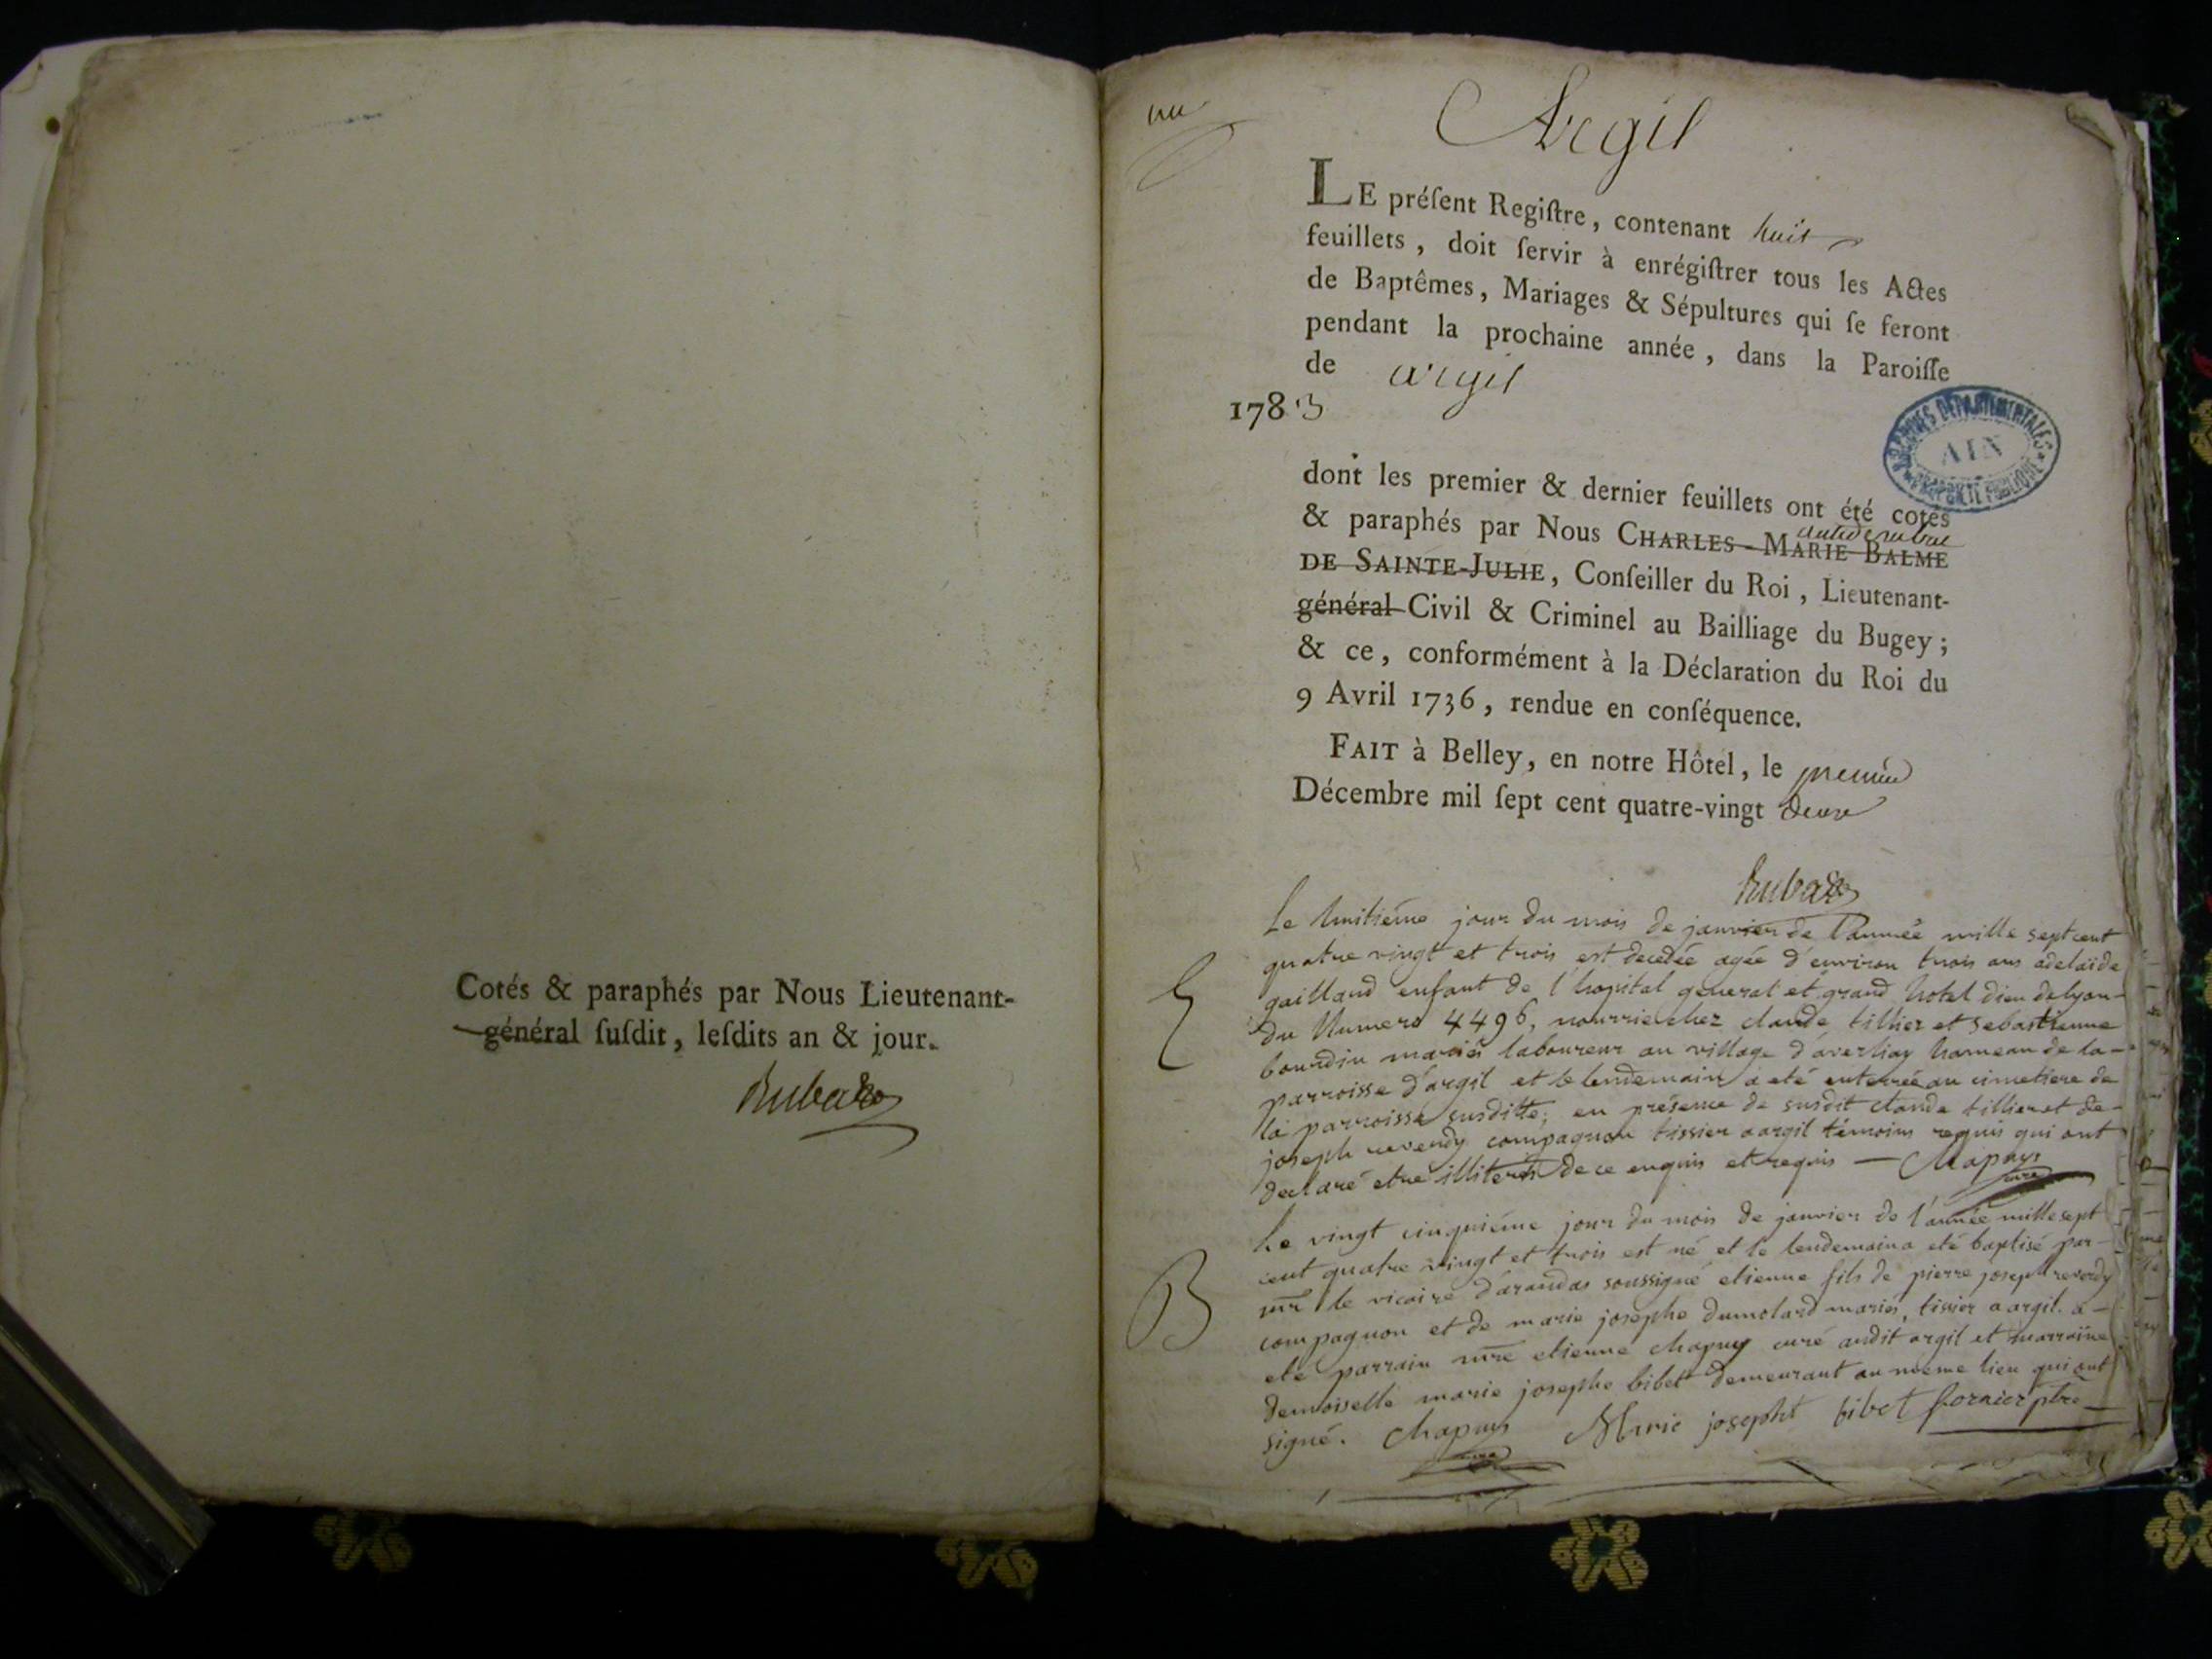 Cotés & paraphés par Nous Lieutenant-
général ſuſdit, leſdits an & jour.
Argil
LE préſent Regiſtre, contenant huit
feuillets, doit ſervir à enrégiſtrer tous les Actes
de Baptêmes, Mariages & Sépultures qui ſe feront
pendant la prochaine année, dans la Paroiſſe
de argil
1783
ARCHIVES DEPARTEMENTALES
AIN
PROPRIETE PUBLIQUE
dont les premier & dernier feuillets ont été cotés
& paraphés par Nous CHARLES-MARIE BALME
DE SAINTE-JULIE, Conſeiller du Roi, Lieutenant-
général Civil & Criminel au Bailliage du Bugey;
& ce, conformément à la Déclaration du Roi du
9 Avril 1736, rendue en conſéquence.
FAIT à Belley, en notre Hôtel, le premier
Décembre mil ſept cent quatre-vingt deux
Le huitiéme jour du mois de janvier de l'année mille sept cent
quatre vingt et trois est decedée agée d'environ trois ans adelaïde
gailland enfant de l'hopital general et grand hotel dieu de lyon
du Numero 4496, nourrie chez claude tillier et sebastienne
bourdin mariés laboureur au village d'averliaz hameau de la
parroisse d'argil et le lendemain a eté enterrée au cimetiere de
la parroisse susditte; en présence de susdit claude tillier et de
joseph reverdy compagnon tissier a argil témoins requis qui ont
declaré etre illiterés de ce enquis et requis — Chapuy
curé
E
Le vingt cinquiéme jour du mois de janvier de l'année mille sept
cent quatre vingt et trois est né et le lendemain a eté baptisé par
mr le vicaire d'arandas soussigné etienne fils de pierre joseph reverdy
compagnon et de marie josephe dumolard mariés, tissier a argil. a
eté parrain mre etienne chapuy curé audit argil et marraine
demoiselle marie josephe bibet demeurant au meme lieu qui ont
signé. Chapuy Marie josepht bibet fornier ptre
curé
B